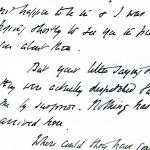 not happen to be in & I was
hoping shortly to see you in
you about them.
But your letter saying
they were actually despatched
me by surprise. Nothing has
arrived here.
Where could they have